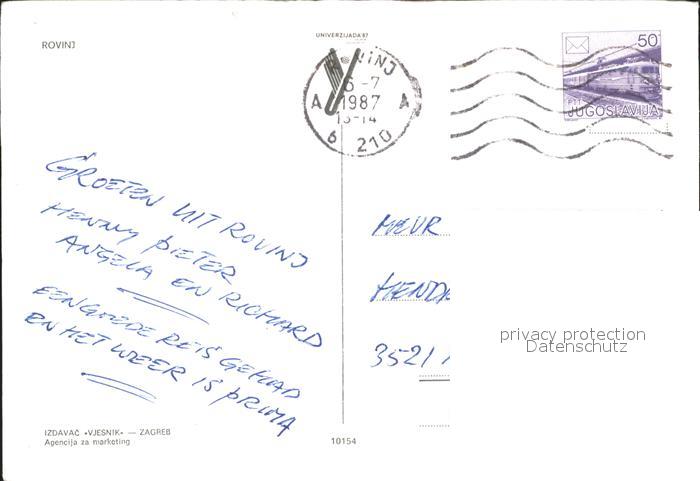 ROVINJ
UNIVERZIJADA 87
ROVINJ
6-7
A 1987 A
13-14
6 210
50
PTT
JUGOSLAVIJA
GROETEN UIT ROVINJ
HENNY PIETER
ANGELA EN RICHARD
EEN GOEDE REIS GEHAD
EN HET WEER IS PRIMA
MEVR
HENDR
3521
privacy protection
Datenschutz
IZDAVAČ «VJESNIK» — ZAGREB
Agencija za marketing
10154